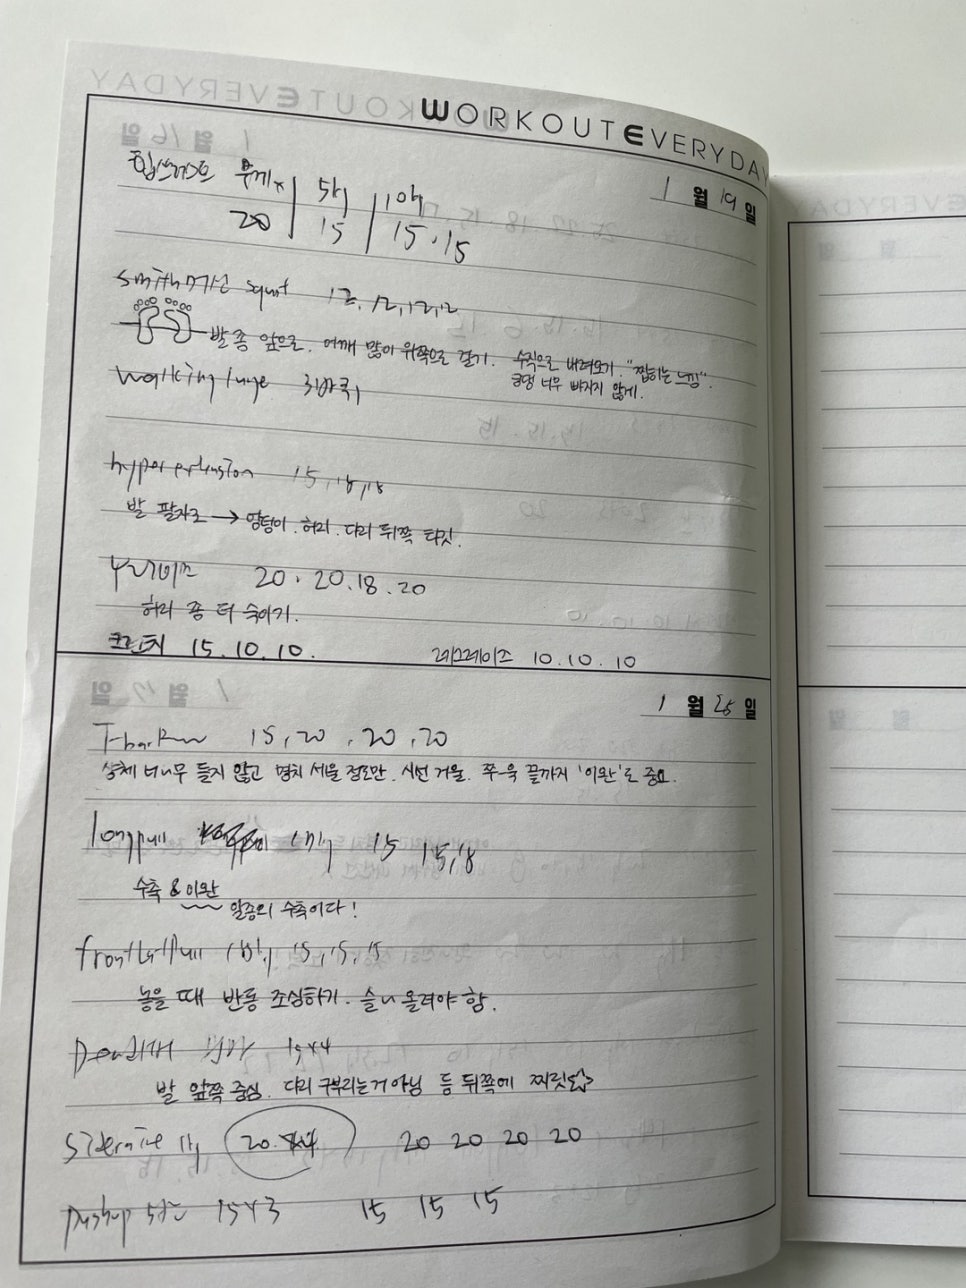 WORKOUTEVERYDAY
1월 19일
힙쓰러스트 무게x 5kg 10kg
20 15 15.15
smith머신 squat 12, 12, 12, 12
발 좀 앞으로. 어깨 많이 뒤쪽으로 걸기. 수직으로 내려오기. "찝히는 느낌".
궁댕 너무 빠지지 않게.
Walking lunge 3바퀴
hyper extension 15, 15, 15
발 팔자로 → 엉덩이. 허리. 다리 뒤쪽 타깃.
20. 20. 18. 20
허리 좀 더 숙이기.
크런치 15. 10. 10. 레그레이즈 10. 10. 10
1월 25일
T-bar Row 15, 20, 20, 20
상체 너무 들지 않고 명치 세울 정도만. 시선 거울. 쭈-욱 끝까지 '이완'도 중요.
longpull 15 15, 18
수축 & 이완
일종의 수축이다!
front lat pull 15, 15, 15
놓을 때 반동 조심하기. 슬~ 올려야 함.
Dead lift 15x4
발 앞쪽 중심. 다리 구부리는거 아님 등 뒤쪽에 찌릿☆
Siderai 1kg 20.x4 20 20 20 20
Pushup 15x3 15 15 15